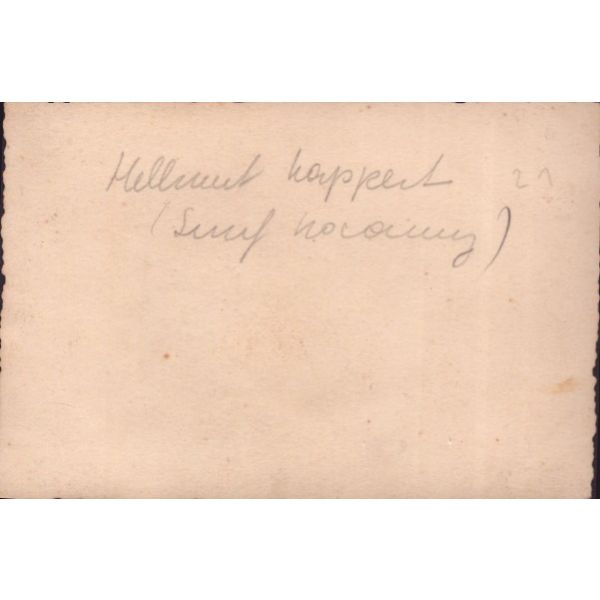 Hellmut Kappert 21
(Sınıf hocamız)